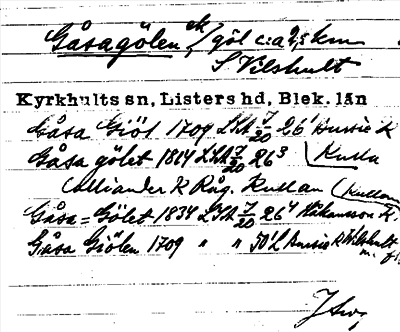 Gåsagölen, göl c:a 2,5 km
S Vilshult
Kyrkhults sn, Listers hd, Blek. län
Gåsa Giöl 1709 LSA J/20 26¹ Bursie K
Gåsa gölet 1814 LSA J/20 26³ (Kulla
Calliander K Råg. Kullan (Kullan
Gåsa=Gölet 1834 LSA J/20 26⁴ Håkansson K.
Gåsa Giölen 1709 " " 50¹ L Bursie K Vilshult